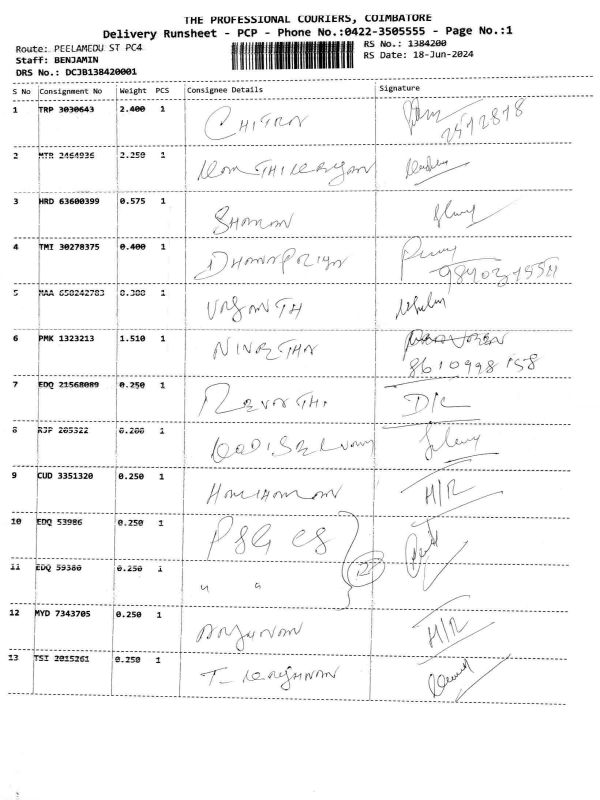 THE PROFESSIONAL COURIERS, COIMBATORE
Delivery Runsheet - PCP - Phone No.:0422-3505555 - Page No.:1
Route: PEELAMEDU ST PC4
RS No.: 1384200
Staff: BENJAMIN
RS Date: 18-Jun-2024
DRS No.: DCJB138420001
S No Consignment No Weight PCS Consignee Details Signature
1 TRP 3030643 2.400 1 CHITRA
2 MTR 2464936 2.250 1
3 HRD 63600399 0.575 1
4 TMI 30278375 0.400 1 DHANAPRIYA
5 MAA 650242783 0.300 1 VASANTH
6 PMK 1323213 1.510 1 NIVETHA
8610998158
7 EDQ 21568089 0.250 1 REVATHI D/C
8 RJP 205322 0.200 1
9 CUD 3351320 0.250 1 HARIHARAN H/R
10 EDQ 53986 0.250 1 PSG CS
11 EDQ 59380 0.250 1 " "
2
12 MYD 7343705 0.250 1 ARJUNAN H/R
13 TSI 2015261 0.250 1